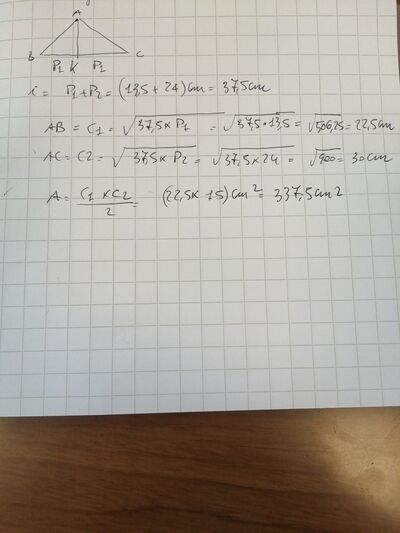 A
B C
P1 K P1
i = P1+P2 = (13,5 + 24) cm = 37,5 cm
AB = C1 = √37,5 x P1 = √37,5 · 13,5 = √506,25 = 22,5 cm
AC = C2 = √37,5 x P2 = √37,5 x 24 = √900 = 30 cm
A = C1 x C2 / 2 = (22,5 x 15) cm² = 337,5 cm²